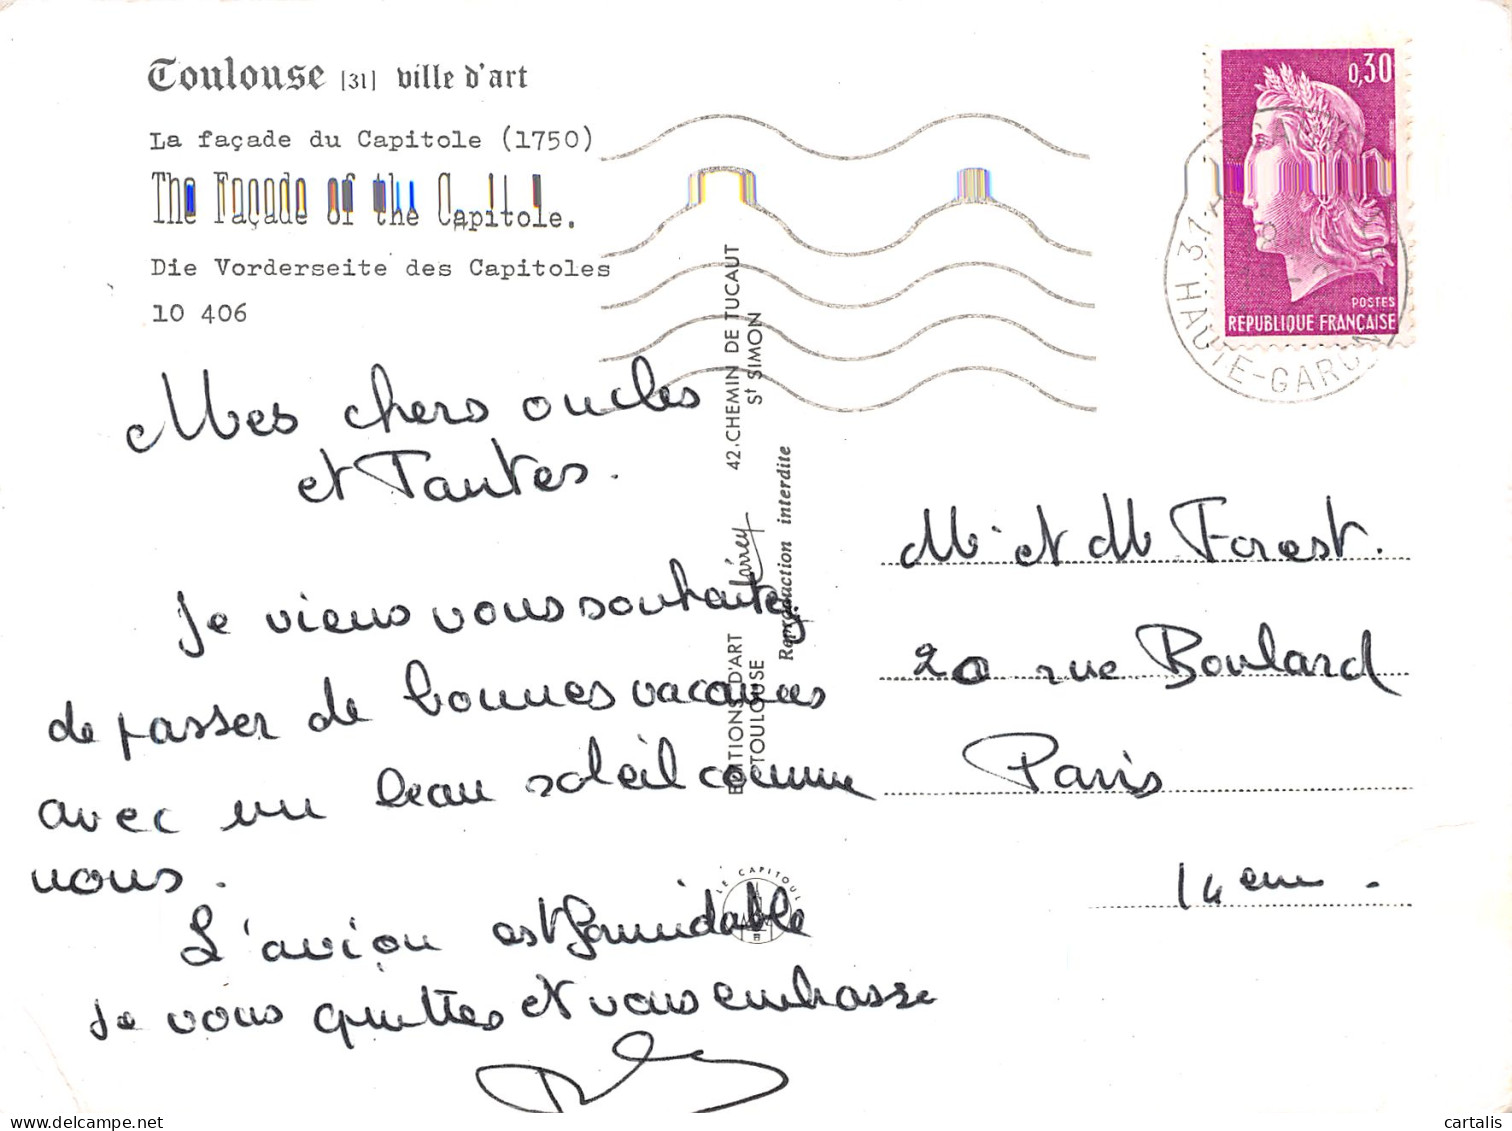 Toulouse [31] ville d'art
La façade du Capitole (1750)
The Façade of the Capitole.
Die Vorderseite des Capitoles
10 406
0,30
POSTES
REPUBLIQUE FRANÇAISE
HAUTE-GARONNE
42. CHEMIN DE TUCAUT
St SIMON
Reproduction interdite
EDITIONS D'ART
TOULOUSE
LE CAPITOUL
Mes chers oncles
et Tantes.
Je viens vous souhaitez
de passer de bonnes vacances
avec un beau soleil comme
nous.
L'avion est formidable
je vous quittes et vous embrasse
Mr et M Forest.
20 rue Boulard
Paris
14 eme.
delcampe.net
cartalis